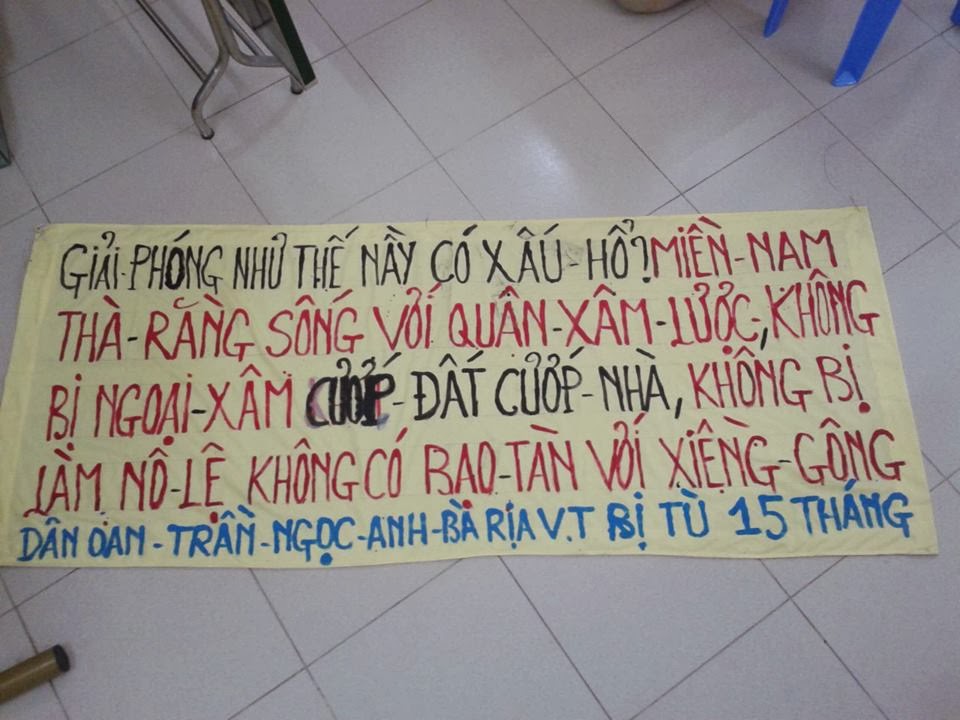 GIẢI-PHÓNG NHƯ THẾ NẦY CÓ XẤU-HỔ? MIỀN-NAM
THÀ-RẰNG SỐNG VỚI QUÂN-XÂM-LƯỢC, KHÔNG
BỊ NGOẠI-XÂM CƯỚP-ĐẤT CƯỚP-NHÀ, KHÔNG BỊ
LÀM NÔ-LỆ KHÔNG CÓ BẠO-TÀN VỚI XIỀNG-GÔNG
DÂN OAN-TRẦN-NGỌC-ANH-BÀ RỊA V.T BỊ TÙ 15 THÁNG